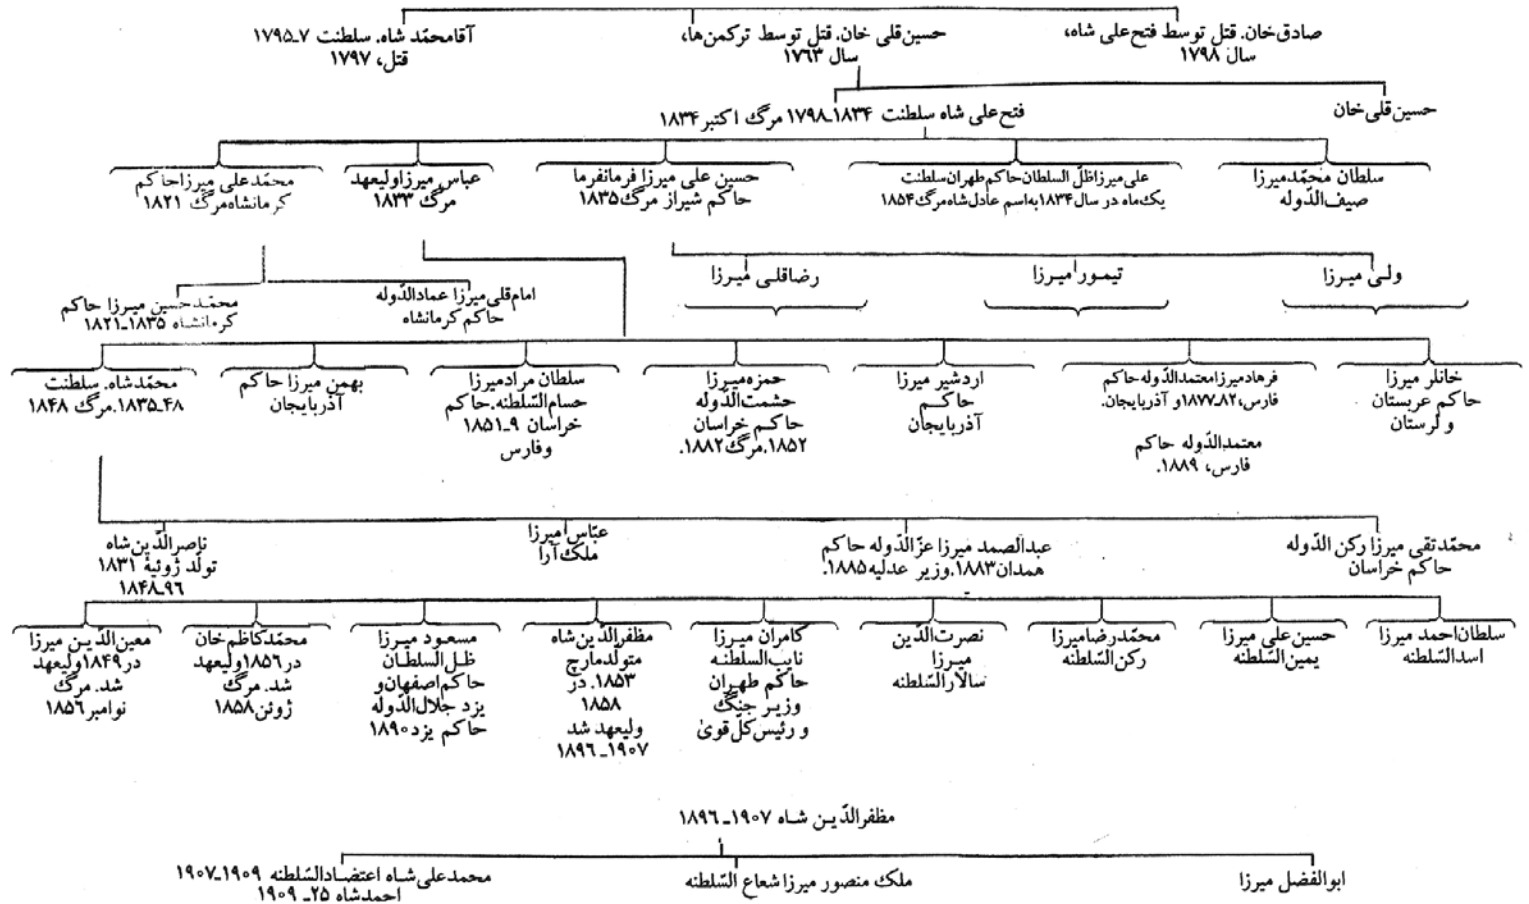 صادق‌خان. قتل توسط فتح‌علی شاه،
سال ۱۷۹۸
حسین‌قلی خان. قتل توسط ترکمن‌ها،
سال ۱۷۶۳
آقامحمّد شاه. سلطنت ۷ـ۱۷۹۵
قتل، ۱۷۹۷
حسین‌قلی‌خان
فتح‌علی شاه سلطنت ۱۸۳۴ـ۱۷۹۸ مرگ اکتبر ۱۸۳۴
سلطان محمّدمیرزا
صیف‌الدّوله
علی‌میرزاظلّ السلطان‌حاکم‌طهران‌سلطنت
یک‌ماه در سال ۱۸۳۴به‌اسم عادل‌شاه‌مرگ ۱۸۵۴
حسین علی میرزا فرمانفرما
حاکم شیراز مرگ ۱۸۳۵
عباس میرزاولیعهد
مرگ ۱۸۳۳
محمّدعلی میرزاحاکم
کرمانشاه‌مرگ ۱۸۲۱
ولی میرزا
تیمور میرزا
رضاقلی میرزا
امام‌قلی‌میرزا عمادالدّوله
حاکم کرمانشاه
محمّدحسین میرزا حاکم
کرمانشاه ۱۸۳۵ـ۱۸۲۱
خانلر میرزا
حاکم عربستان
و لرستان
فرهادمیرزامعتمدالدّوله‌حاکم
فارس،۸۲ـ۱۸۷۷و آذربایجان.
معتمدالدّوله حاکم
فارس، ۱۸۸۹.
اردشیر میرزا
حاکم
آذربایجان
حمزه‌میرزا
حشمت‌الدّوله
حاکم خراسان
۱۸۵۲.مرگ ۱۸۸۲.
سلطان مرادمیرزا
حسام‌السّلطنه.حاکم
خراسان ۹ـ۱۸۵۱
وفارس
بهمن میرزا حاکم
آذربایجان
محمّدشاه. سلطنت
۴۸ـ۱۸۳۵.مرگ ۱۸۴۸
محمّدتقی میرزا رکن الدّوله
حاکم خراسان
عبدالصمد میرزا عزّالدّوله حاکم
همدان۱۸۸۳.وزیر عدلیه۱۸۸۵.
عبّاس میرزا
ملک‌آرا
ناصرالدّین‌شاه
تولّد ژوئیهٔ ۱۸۳۱
۹۶ـ۱۸۴۸
سلطان‌احمد میرزا
اسدالسّلطنه
حسین‌علی میرزا
یمین‌السّلطنه
محمّدرضامیرزا
رکن‌السّلطنه
نصرت‌الدّین
میرزا
سالارالسّلطنه
کامران میرزا
نایب‌السلطنه
حاکم طهران
وزیر جنگ
و رئیس‌کلّ‌قویٰ
مظفرالدّین‌شاه
متولّدمارچ
۱۸۵۳. در
۱۸۵۸
ولیعهد شد
۱۹۰۷ـ۱۸۹۶
مسعود میرزا
ظل‌السلطان
حاکم‌اصفهان‌و
یزد جلال‌الدّوله
حاکم یزد۱۸۹۰
محمّدکاظم‌خان
در۱۸۵۶ولیعهد
شد. مرگ
ژوئن۱۸۵۸
معین‌الدّین میرزا
در۱۸۴۹ولیعهد
شد. مرگ
نوامبر۱۸۵۶
مظفرالدّین شاه ۱۹۰۷ـ۱۸۹۶
ابوالفضل میرزا
ملک منصور میرزا شعاع السّلطنه
محمدعلی‌شاه اعتضادالسّلطنه ۱۹۰۹ـ۱۹۰۷
احمدشاه ۲۵ـ۱۹۰۹